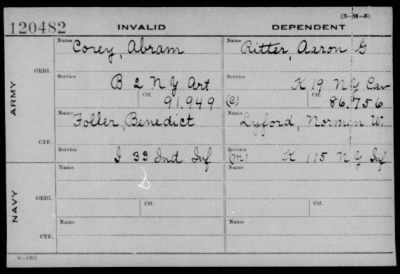 (3-M-5)
120482 INVALID DEPENDENT
Name Corey, Abram Name Ritter, Aaron G
ARMY
ORIG.
Service B 2 N Y Art Service K 19 N Y Cav
Ctf. 91,949 (C) Ctf. 86,756
Name Foller, Benedict Name Lyford, Norman W.
CTF.
Service I 33 Ind Inf Service (M) K 115 N Y Inf
Name Name
NAVY
ORIG.
Service Ctf. Service Ctf.
Name Name
CTF.